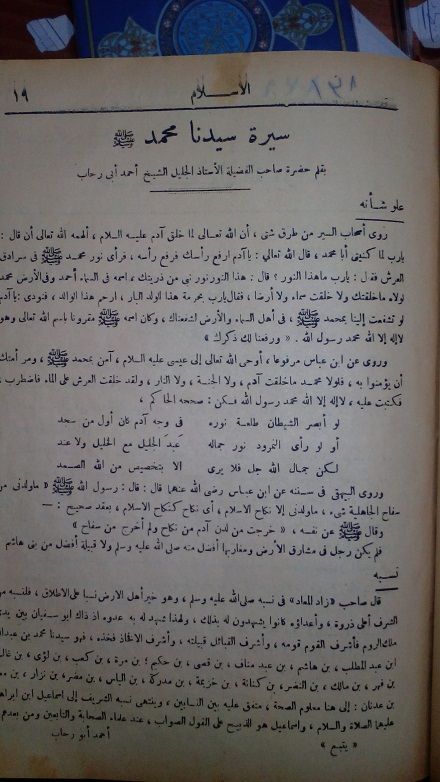 ١٩ الاسلام
سيرة سيدنا محمد ﷺ
بقلم حضرة صاحب الفضيلة الأستاذ الجليل الشيخ أحمد أبى رحاب
علو شأنه
روى أصحاب السير من طرق شتى ، أن الله تعالى لما خلق آدم عليه السلام ، ألهمه الله تعالى أن قال :
يارب لم كنيتنى أبا محمد ، قال الله تعالى : يا آدم ارفع رأسك فرفع رأسه ، فرأى نور محمد ﷺ فى سرادق
العرش فقال : يارب ماهذا النور ؟ قال : هذا النور نور نبى من ذريتك ، اسمه فى السماء أحمد وفى الأرض محمد
لولاه ماخلقتك ولا خلقت سماء ولا أرضا ، فقال يارب بحرمة هذا الولد البار ، ارحم هذا الوالد ، فنودى : يا آدم
لو تشفعت إلينا بمحمد ﷺ ، فى أهل السماء والأرض لشفعناك ، وكان اسمه ﷺ مقرونا باسم الله تعالى وهو
لا إله إلا الله محمد رسول الله . « ورفعنا لك ذكرك »
وروى عن ابن عباس مرفوعا ، أوحى الله تعالى إلى عيسى عليه السلام ، آمن بمحمد ﷺ ، ومر أمتك
أن يؤمنوا به ، فلولا محمد ماخلقت آدم ، ولا الجنة ، ولا النار ، ولقد خلقت العرش على الماء فاضطرب ،
فكتبت عليه ، لا إله إلا الله محمد رسول الله فسكن : صححه الحاكم ،
لو أبصر الشيطان طلعة نوره فى وجه آدم كان أول من سجد
أو لو رأى النمرود نور جماله عبد الجليل مع الخليل ولا عند
لكن جمال الله جل فلا يرى الا بتخصيص من الله الصمد
وروى البيهقى فى سننه عن ابن عباس رضى الله عنهما قال : قال : رسول الله ﷺ « ماولدنى من
سفاح الجاهلية شىء ، ماولدنى إلا نكاح الاسلام ، أى نكاح كنكاح الاسلام ، بعقد صحيح : —
وقال ﷺ عن نفسه ، « خرجت من لدن آدم من نكاح ولم أخرج من سفاح »
فلم يكن رجل فى مشارق الأرض ومغاربها أفضل منه صلى الله عليه وسلم ولا قبيلة أفضل من بنى هاشم
نسبه
قال صاحب « زاد المعاد » فى نسبه صلى الله عليه وسلم ، وهو خير أهل الارض نسبا على الاطلاق ، فلنسبه من
الشرف أعلى ذروة ، وأعداؤه كانوا يشهدون له بذلك ، ولهذا شهد له به عدوه اذ ذاك ابو سفيان بين يدى
ملك الروم فأشرف القوم قومه ، وأشرف القبائل قبيلته ، وأشرف الأفخاذ فخذه ، فهو سيدنا محمد بن عبدالله
ابن عبد المطلب ، بن هاشم ، بن عبد مناف ، بن قصى ، بن حكيم ؛ بن مرة ، بن كعب ، بن لؤى ، بن غالب
بن فهر ، بن مالك ، بن النضر ، بن كنانة ، بن خزيمة ، بن مدركة ، بن الياس ، بن مضر ، بن نزار ، بن
بن عدنان : إلى هنا معلوم الصحة ، متفق عليه بين النسابين ، وينتهى نسبه الشريف إلى اسماعيل ابن ابراهيم
عليهما الصلاة والسلام ، واسماعيل هو الذبيح على القول الصواب ، عند علماء الصحابة والتابعين ومن بعدهم
« يتبع » أحمد أبو رحاب